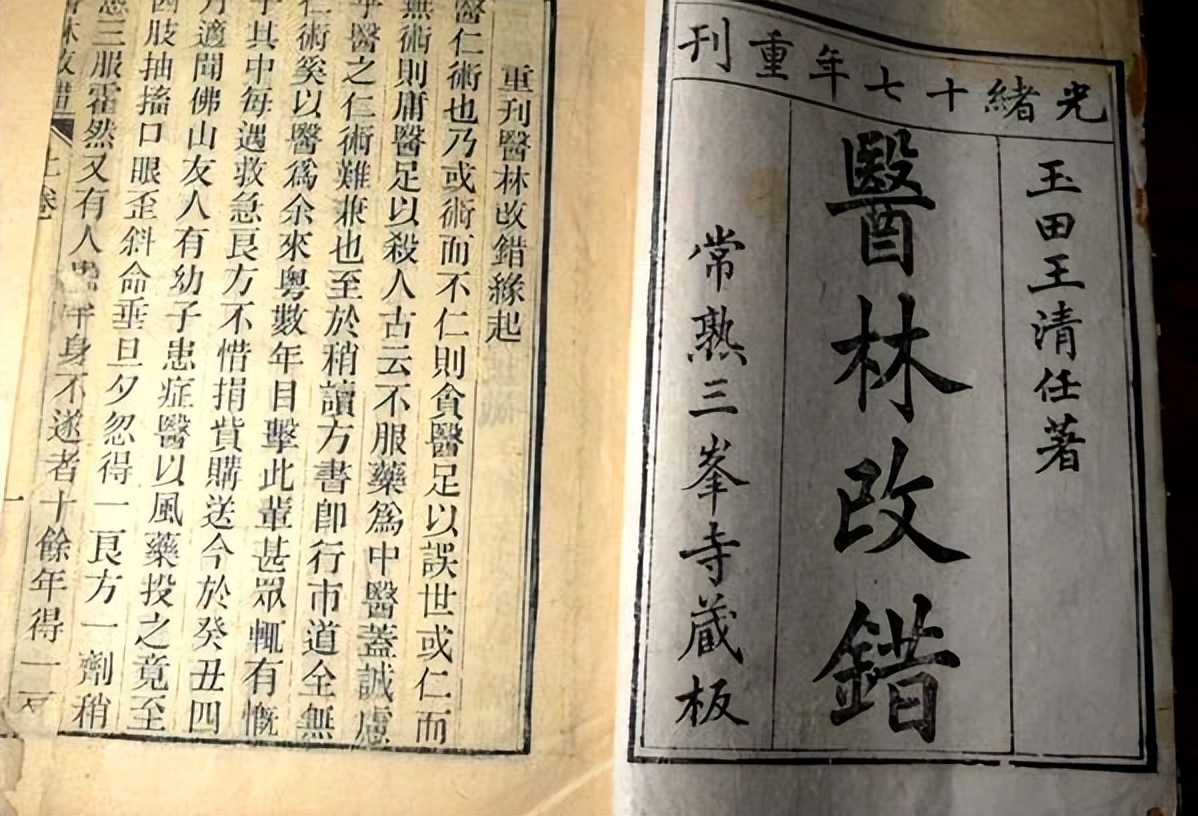 光緒十七年重刊
玉田王清任著
醫林改錯
常熟三峯寺藏板
重刊醫林改錯緣起
醫仁術也乃或術而不仁則貪醫足以誤世或仁而
無術則庸醫足以殺人古云不服藥爲中醫蓋誠慮
乎醫之仁術難兼也至於稍讀方書卽行市道全無
仁術奚以醫爲余來粵數年目擊此輩甚眾輒有慨
于其中每遇救急良方不惜捐貲購送今於癸丑四
月適聞佛山友人有幼子患症醫以風藥投之竟至
四肢抽搐口眼歪斜命垂旦夕忽得一良方一劑稍
愈三服霍然又有人患半身不遂者十餘年得一
醫林改錯 上卷 一